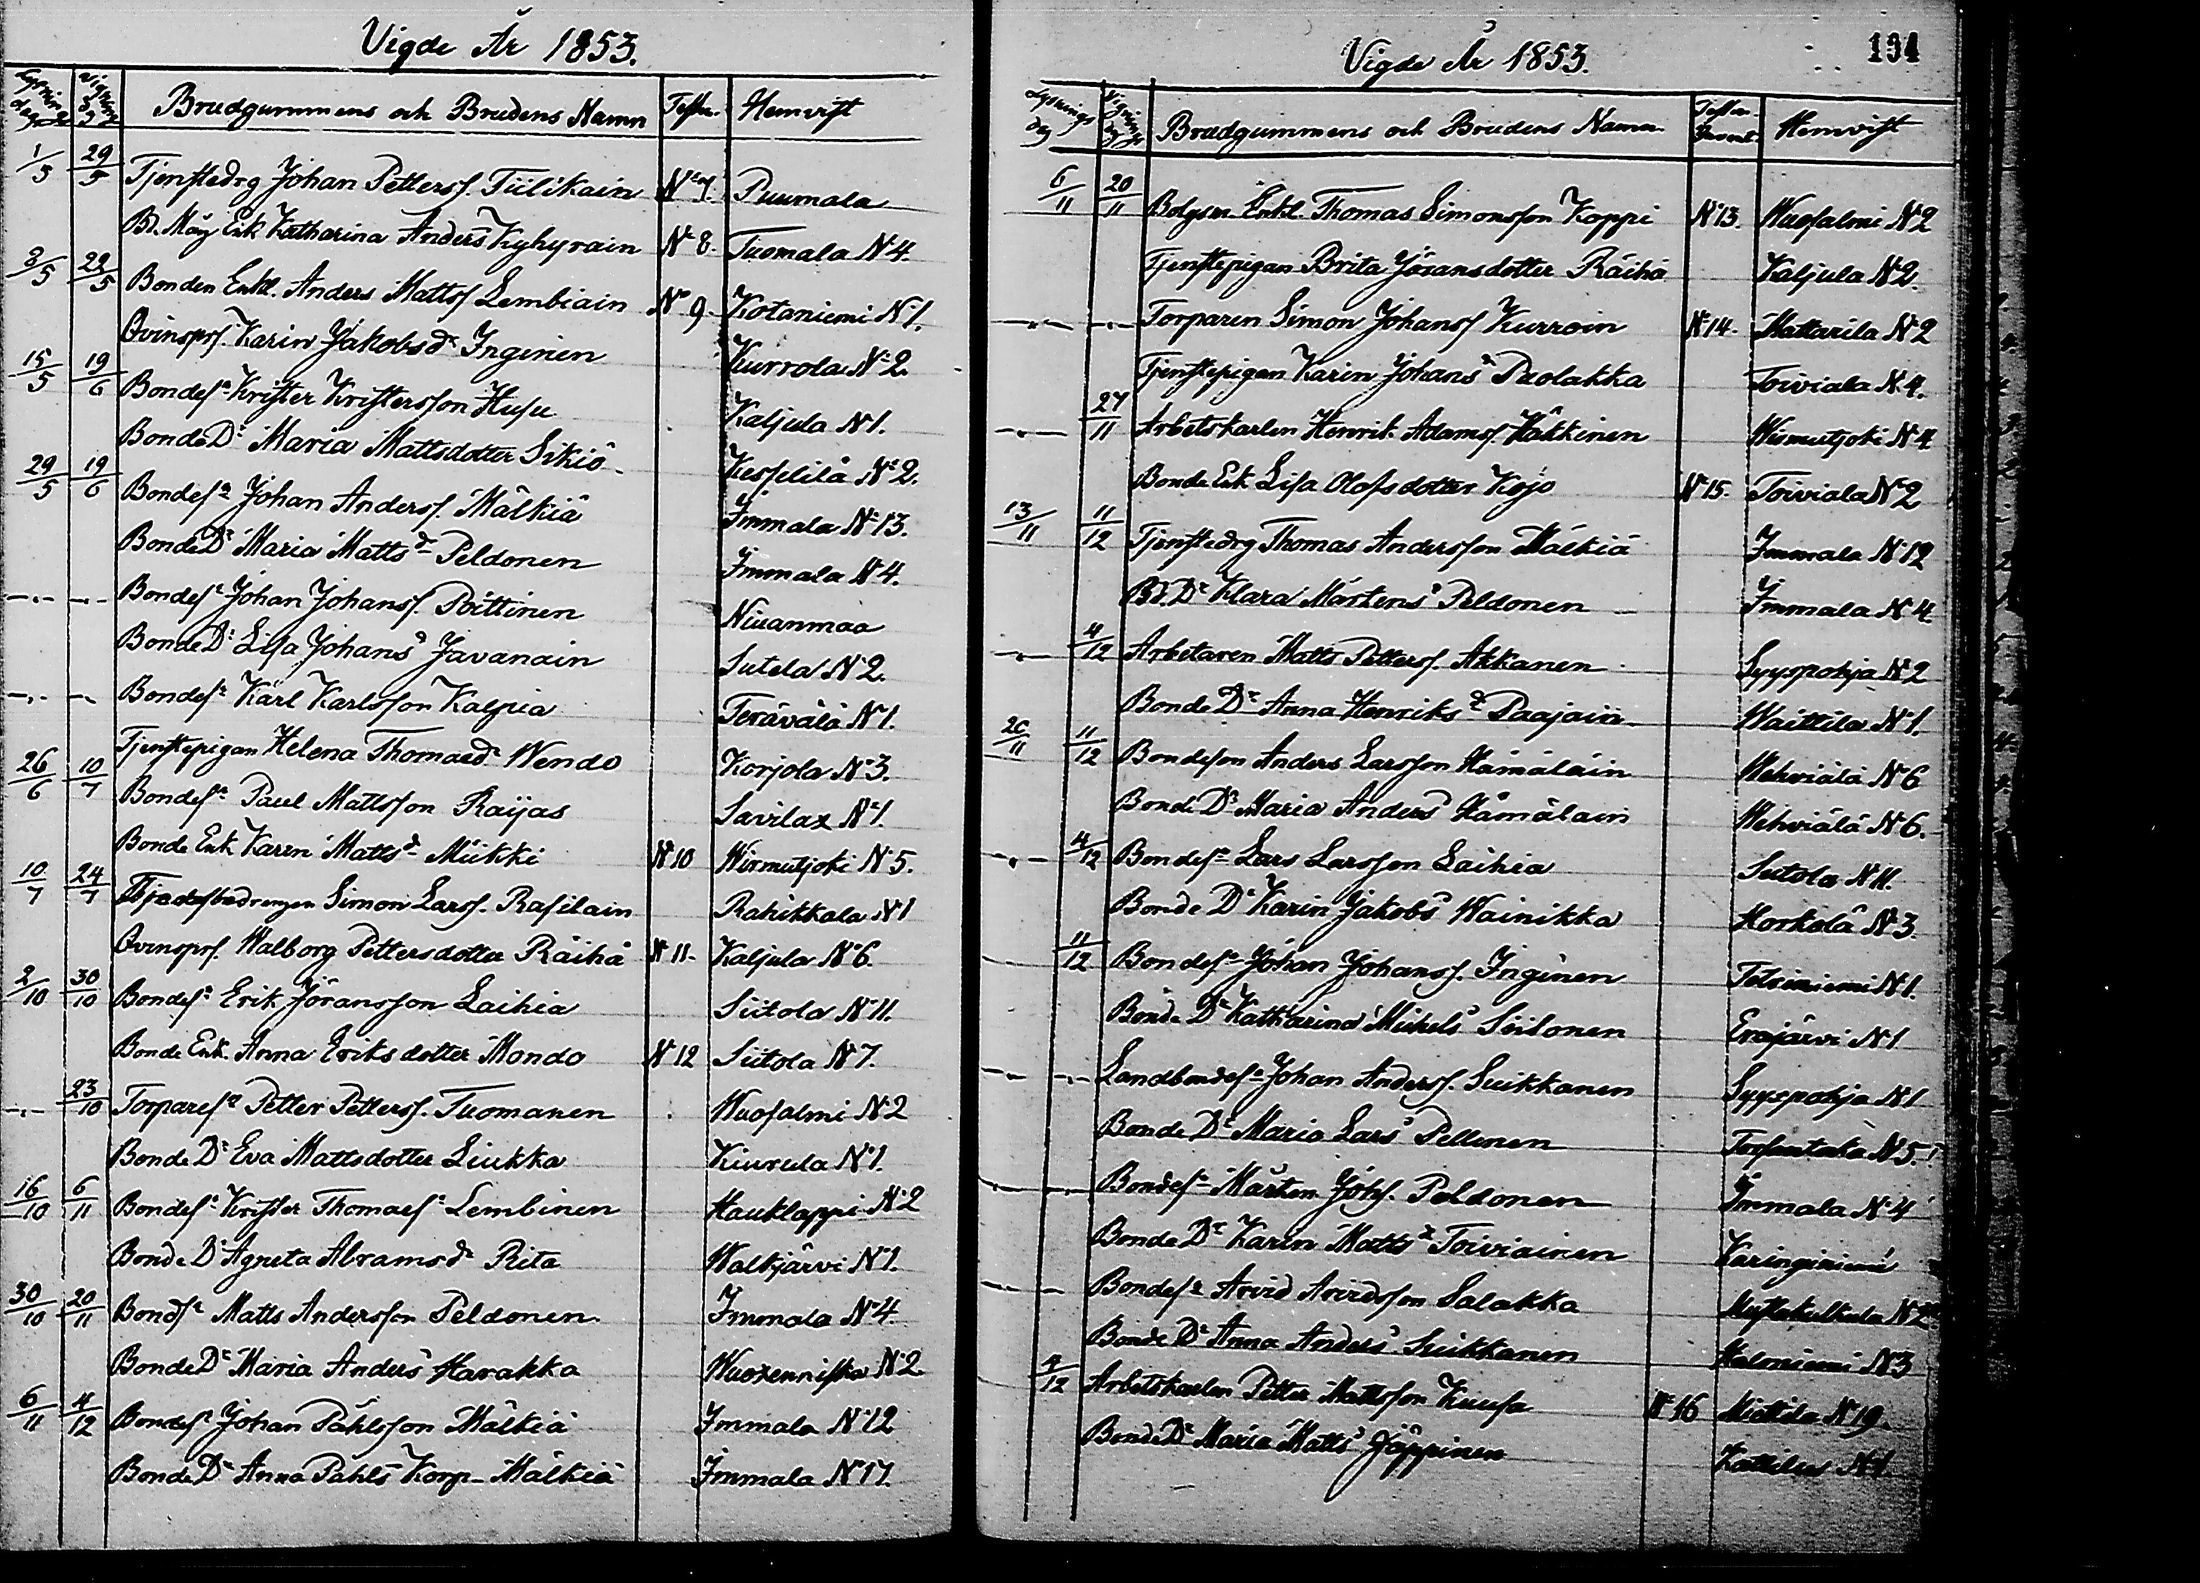 Vigde År 1853.
Lysnings dag Vignings dag Brudgummens och Brudens Namn Testam. Hemvist
1/5 29/5 Tjenstedrg Johan Pettersf. Tiilikain N:o 7. Puumala
Bd. Måg Enk Katharina Anders Kyhyrain N:o 8. Tuomala N:4
8/5 22/5 Bonden Enkl. Anders Mattsf Lembiain N:o 9. Kotaniemi N:1.
Qvinsprs. Karin Jakobsdr Inginen Kurrola N:2.
15/5 19/6 Bondesn Krister Kristersson Husu Kaljula N:1.
Bonde Dr Maria Mattsdotter Sikiö Kesselilä N:2.
29/5 19/6 Bondesn Johan Andersf. Mälkiä Immala N:13.
Bonde Dr Maria Mattsdr Peldonen Immala N:4.
-"- -"- Bondesn Johan Johansf. Pöittinen Niuanmaa
Bonde Dr Lisa Johansd Javanain Sutela N:2.
-"- -"- Bondesn Karl Karlsson Kalpia Terävälä N:1.
Tjenstepigan Helena Thomaedr Wendo Korjola N:3.
26/6 10/7 Bondesn Paul Mattsson Raijas Savilax N:1.
Bonde Enk Karin Mattsdr Miikki N:10 Wirmutjoki N:5.
10/7 24/7 Simon Larsf. Rasilain Rahikkala N:1
Qvinsprs. Walborg Pettersdotter Räihä N:11. Kaljula N:6.
2/10 30/10 Bondesn Erik Jöransson Laihia Siitola N:11.
Bonde Enk. Anna Eriksdotter Mondo N:12 Siitola N:7.
-"- 23/10 Torparesn Petter Pettersf. Tuomanen Wuosalmi N:2
Bonde Dr Eva Mattsdotter Liukka Kiurula N:1.
16/10 6/11 Bondesn Krister Thomaesn Lembinen Hauklappi N:2
Bonde Dr Agneta Abramsdr Rita Walkjärvi N:1.
30/10 20/11 Bondsn Matts Andersson Peldonen Immala N:4.
Bonde Dr Maria Andersd Harakka Wuoxenniska N:2.
6/11 4/12 Bondesn Johan Påhlsson Mälkiä Immala N:12
Bonde Dr Anna Påhlsd Korp-Mälkiä Immala N:17.
Vigde År 1853. 134
Lysnings dag Vignings dag Brudgummens och Brudens Namn Hemvist
6/11 20/11 Enkl. Thomas Simonsson Koppi N:13. Wuosalmi N:2
Tjenstepigan Brita Jöransdotter Räihä Kaljula N:2.
-"- -"- Torparen Simon Johansf Kurroin N:14. Mattarila N:2
Tjenstepigan Karin Johansd Puolakka Toiviala N:4.
-"- 27/11 Arbetskarlen Henrik Adamsf. Häkkinen Wirmutjoki N:4
Bonde Enk Lisa Olofsdotter Kojo N:15. Toiviala N:2
13/11 11/12 Tjenstedrg Thomas Andersson Mälkiä Immala N:12
Bd. Dr Klara Mårtensd Peldonen Immala N:4
-"- 4/12 Arbetaren Matts Pettersf. Akkanen Syyspohja N:2
Bonde Dr Anna Henriksdr Paajain Waittila N:1.
20/11 11/12 Bondeson Anders Larsson Hämäläin Wehviälä N:6
Bonde Dr Maria Andersd Hämäläin Wehviälä N:6.
-"- 4/12 Bondesn Lars Larsson Laihia Siitola N:11.
Bonde Dr Karin Jakobsd Wainikka Korkolä N:3.
11/12 Bondesn Johan Johansf. Inginen N:1.
Bonde Dr Katharina Michelsd Siitonen Eräjärvi N:1
-"- -"- Landbondesn Johan Andersf. Suikkanen Syyspohja N:1
Bonde Dr Maria Larsd Pellinen Torsantaka N:5.
-"- -"- Bondesn Mårten Johsf. Peldonen Immala N:4
Bonde Dr Karin Mattsdr Toiviainen Karinginiemi
-"- -"- Bondesn Arvid Arvidsson Salakka N:2
Bonde Dr Anna Andersd Suikkanen N:3
4/12 Arbetskarlen Petter Mattsson Kuusa N:16 Miettilä N:19.
Bonde Dr Maria Mattsd Jäppinen Kattilus N:1